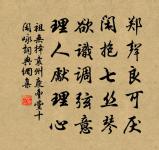 郑声良可厌
闲抱七丝琴
欲识调弦意
理人献理心
祖无择袁州庆丰堂十
闲咏词典网集